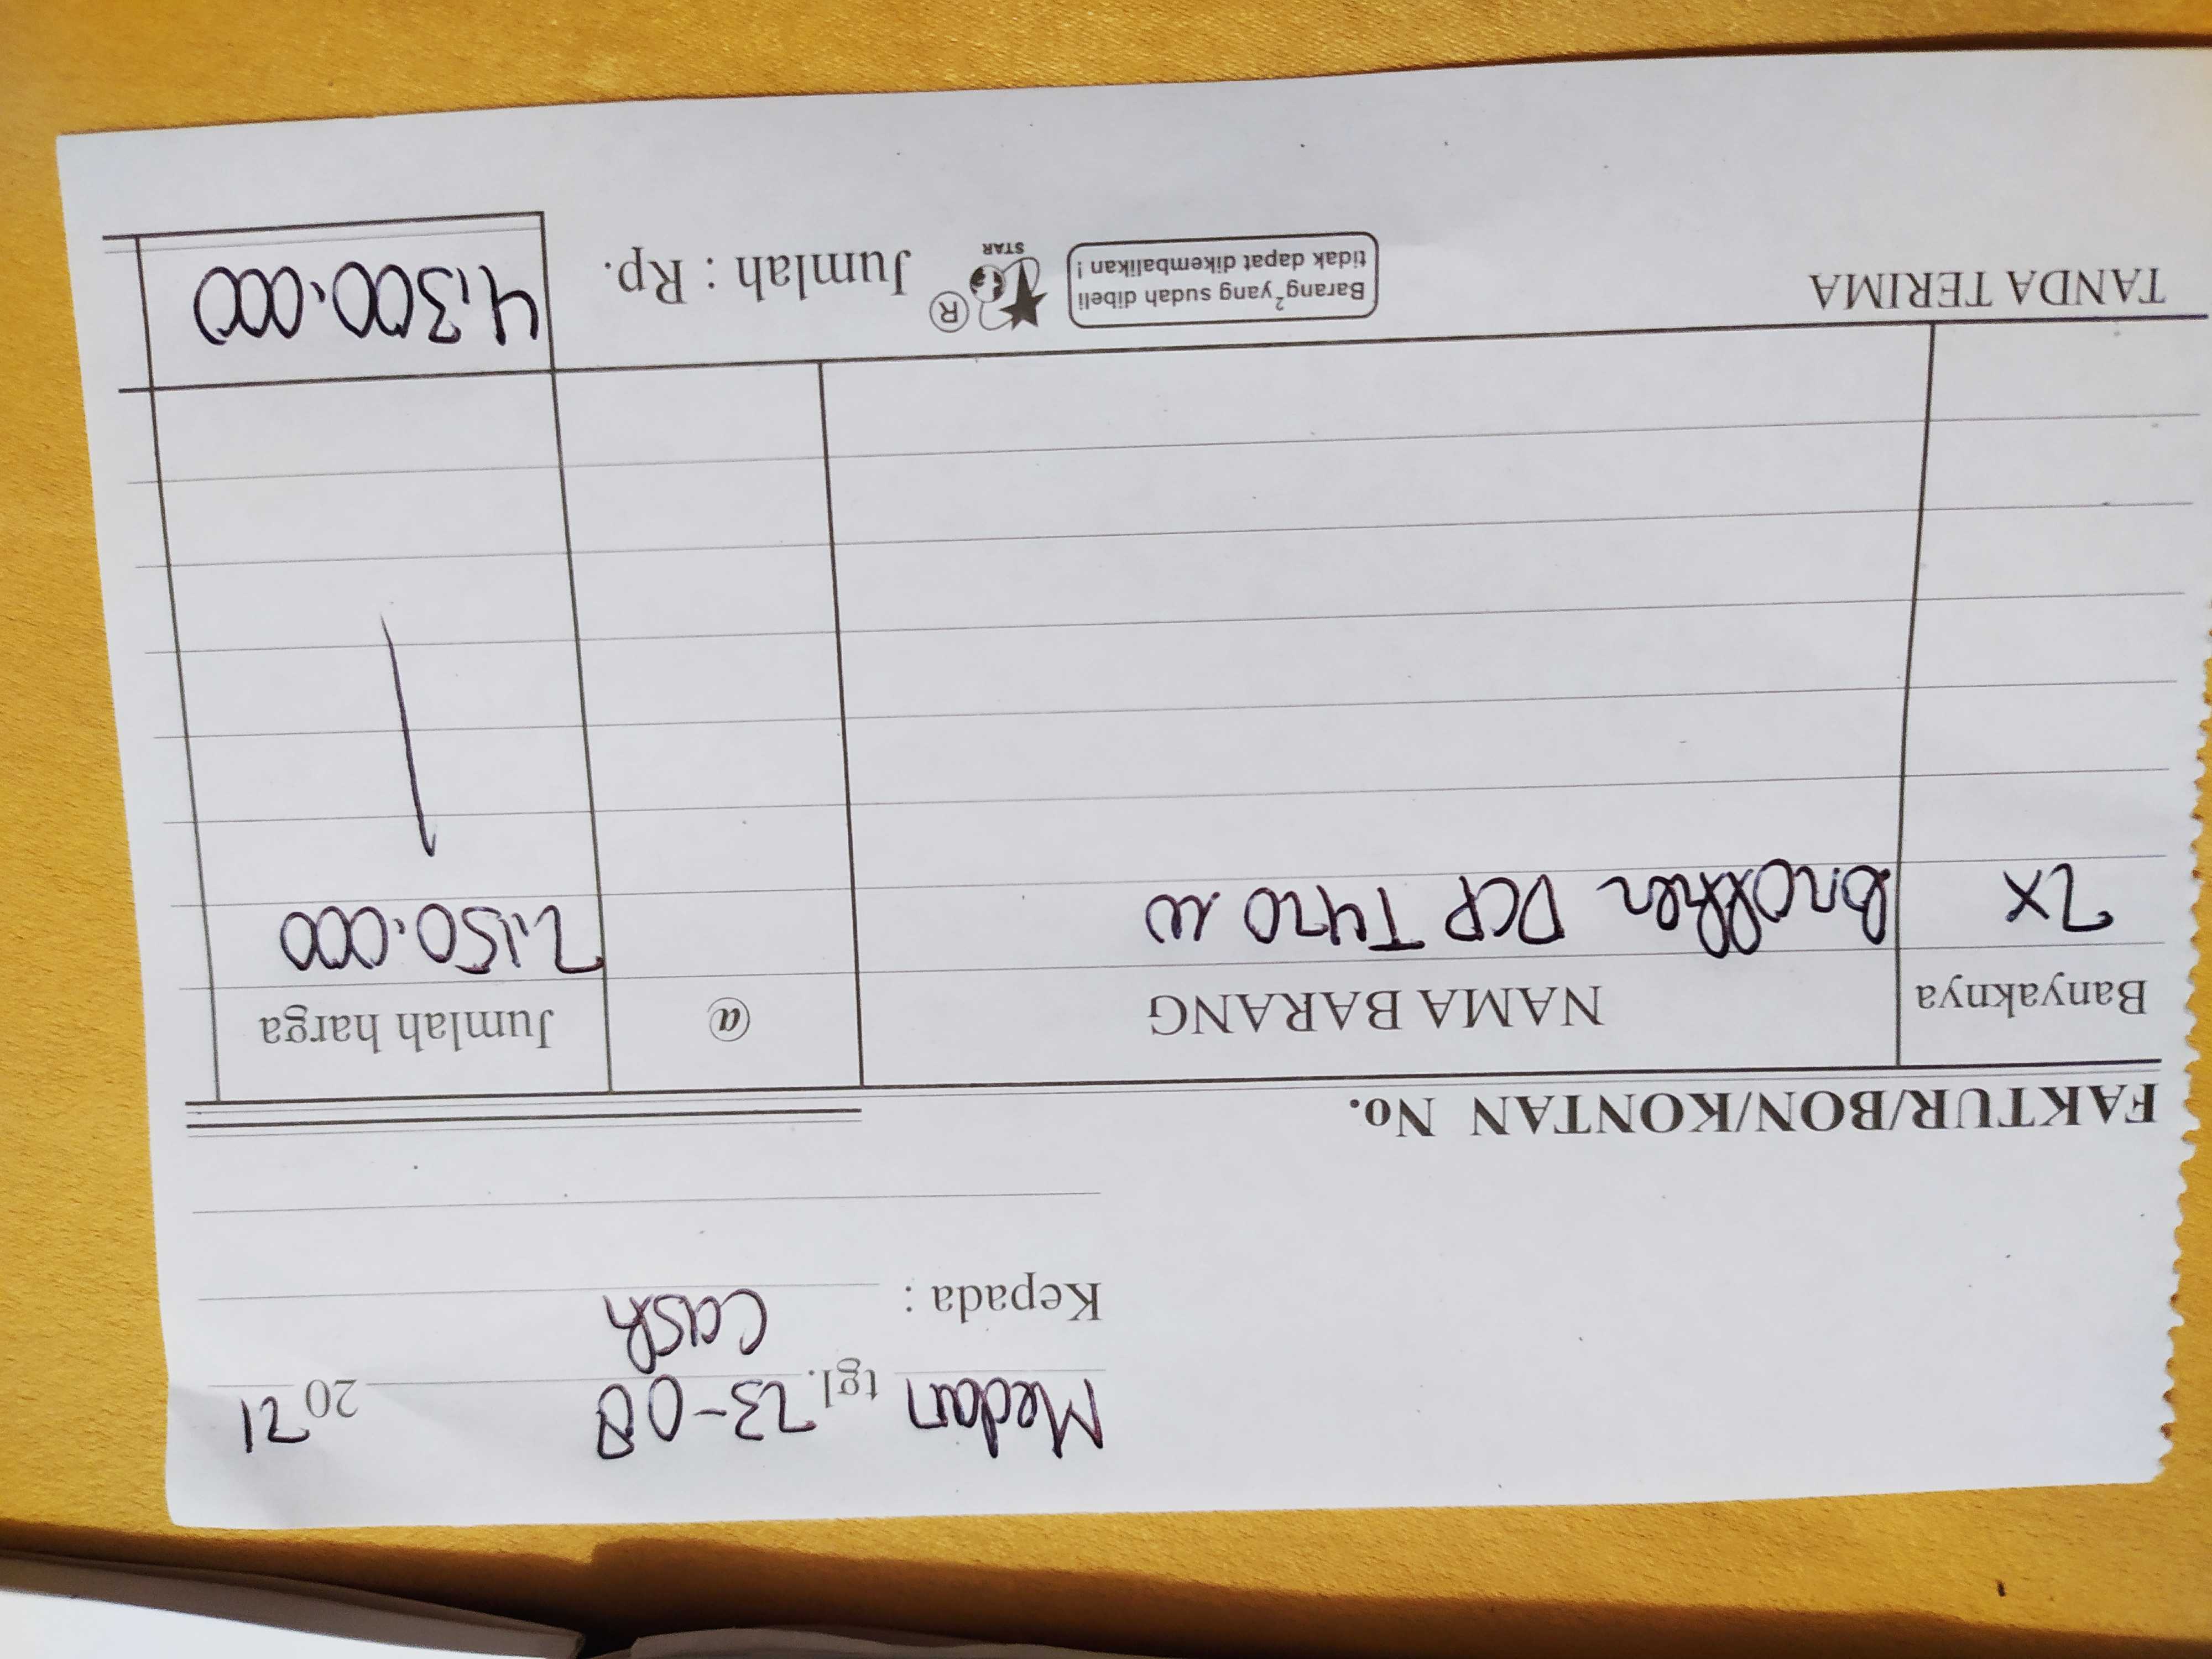 Medan tgl. 23-08 2021
Kepada : Cash
FAKTUR/BON/KONTAN No.
Banyaknya NAMA BARANG @ Jumlah harga
2x Brother DCP T420 W 2.150.000
TANDA TERIMA
Barang² yang sudah dibeli
tidak dapat dikembalikan !
®
STAR
Jumlah : Rp. 4.300.000